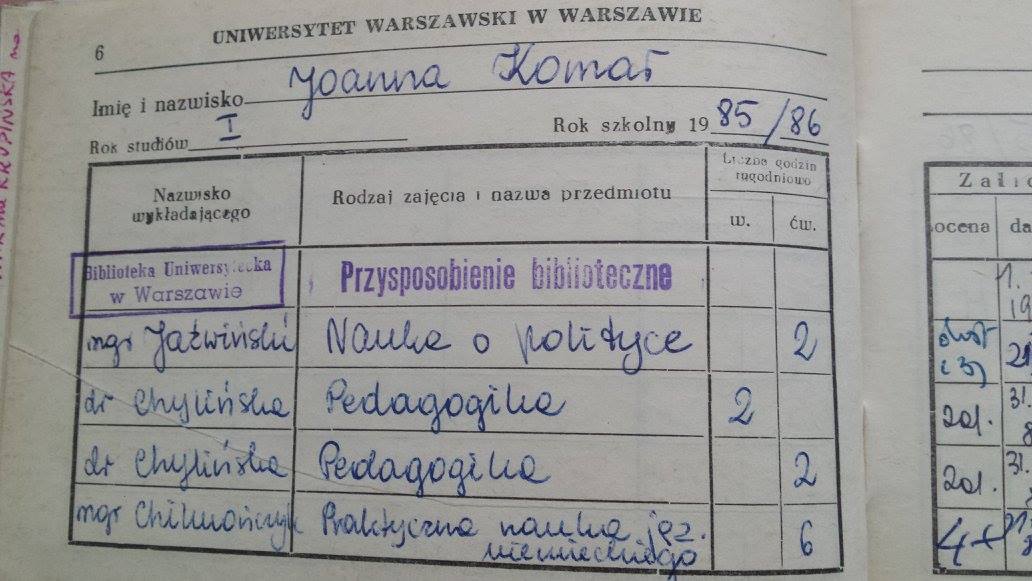 6
UNIWERSYTET WARSZAWSKI W WARSZAWIE
Imię i nazwisko Joanna Komar
Rok studiów I
Rok szkolny 1985/86
Nazwisko wykładającego
Rodzaj zajęcia i nazwa przedmiotu
Liczba godzin tygodniowo
w. ćw.
Biblioteka Uniwersytecka
w Warszawie
Przysposobienie biblioteczne
mgr Jaźwiński Nauka o polityce 2
dr Chylińska Pedagogika 2
dr Chylińska Pedagogika 2
mgr Praktyczna nauka jęz.
niemieckiego 6
ocena
zal.
zal.
4+